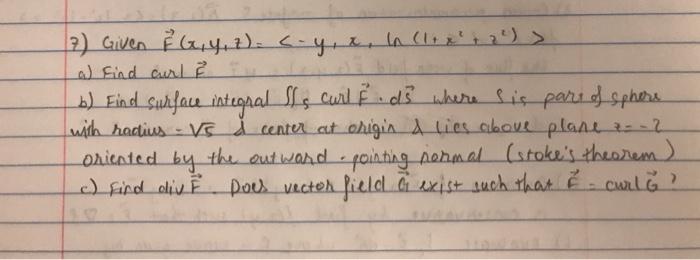 7) Given F⃗ (x, y, z) = < -y, x, ln (1 + x² + z²) >
a) Find curl F⃗
b) Find surface integral ∬s curl F⃗ · dS⃗ where S is part of sphere
with radius = √5 & center at origin & lies above plane z = -2
oriented by the outward - pointing normal (stoke's theorem)
c) Find div F⃗. Does vector field G⃗ exist such that F⃗ = curl G⃗ ?